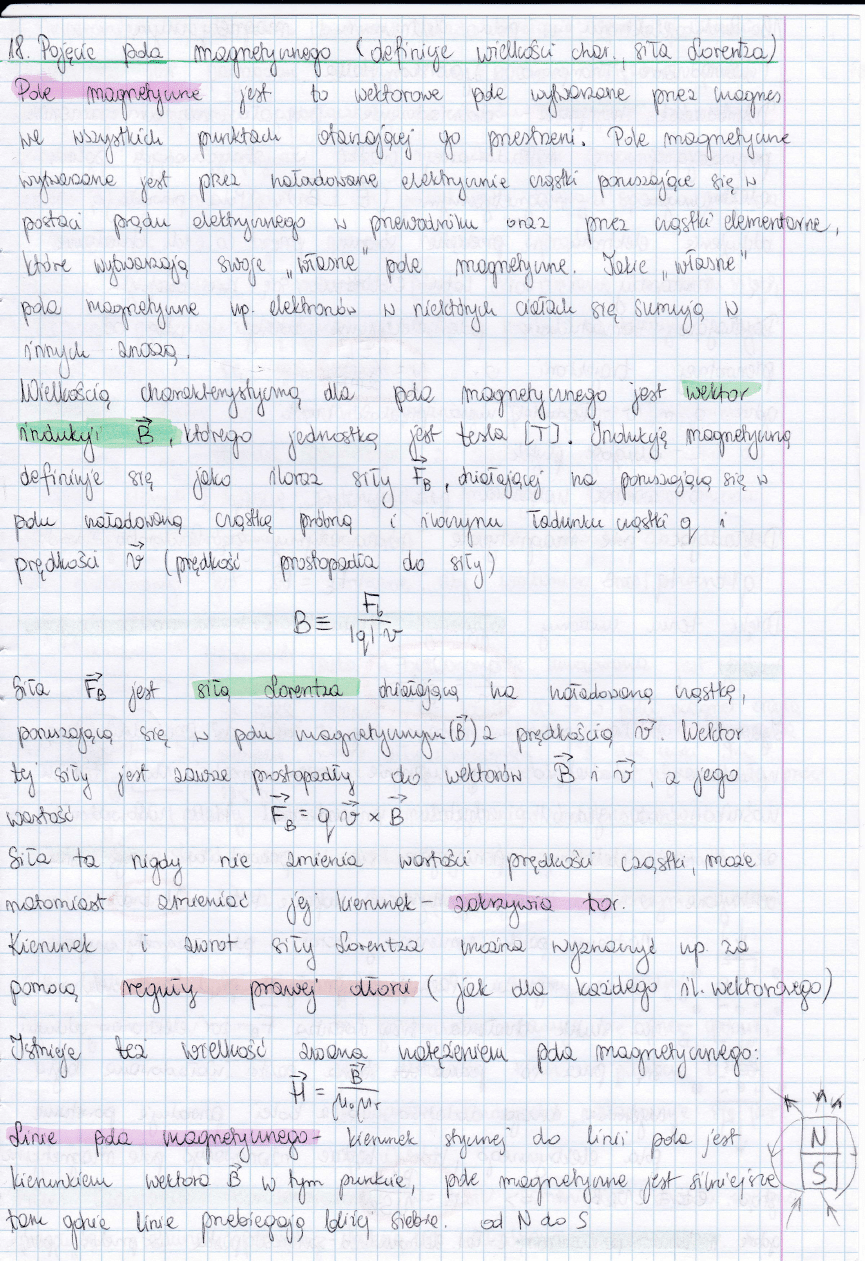 18. Pojęcie pola magnetycznego (definicje wielkości char., siła Lorentza)
Pole magnetyczne jest to wektorowe pole wytwarzane przez magnes
we wszystkich punktach otaczającej go przestrzeni. Pole magnetyczne
wytwarzane jest przez naładowane elektrycznie cząstki poruszające się w
postaci prądu elektrycznego w przewodniku oraz przez cząstki elementarne,
które wytwarzają swoje „własne" pole magnetyczne. Takie „własne"
pola magnetyczne np. elektronów w niektórych ciałach się sumują w
innych znoszą.
Wielkością charakterystyczną dla pola magnetycznego jest wektor
indukcji B⃗, którego jednostką jest tesla [T]. Indukcję magnetyczną
definiuje się jako iloraz siły F⃗_B, działającej na poruszającą się w
polu naładowaną cząstkę próbną i iloczynu ładunku cząstki q i
prędkości v⃗ (prędkość prostopadła do siły)
B ≡ F_b / |q| v
Siła F⃗_B jest siłą Lorentza działającą na naładowaną cząstkę,
poruszającą się w polu magnetycznym (B⃗) z prędkością v⃗. Wektor
tej siły jest zawsze prostopadły do wektorów B⃗ i v⃗, a jego
wartość F⃗_B = q v⃗ × B⃗
Siła ta nigdy nie zmienia wartości prędkości cząstki, może
natomiast zmieniać jej kierunek - zakrzywia tor.
Kierunek i zwrot siły Lorentza można wyznaczyć np. za
pomocą reguły prawej dłoni (jak dla każdego il. wektorowego)
Istnieje też wielkość zwana natężeniem pola magnetycznego:
H⃗ = B⃗ / μ₀μ_r
Linie pola magnetycznego - kierunek stycznej do linii pola jest
kierunkiem wektora B⃗ w tym punkcie, pole magnetyczne jest silniejsze
tam gdzie linie przebiegają bliżej siebie. od N do S
N
S